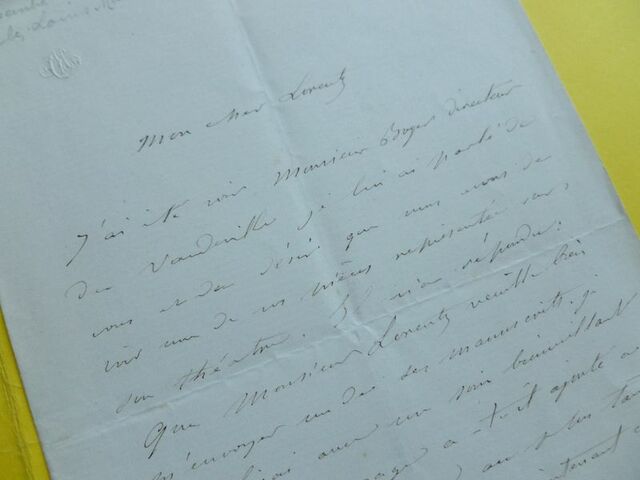 Mon cher Lorentz
J'ai été voir Monsieur Boyer directeur
du Vaudeville je lui ai parlé de
vous et du désir que vous avez de
voir une de vos pièces représentée sur
son théatre. Il m'a répondu:
Que Monsieur Lorentz veuille bien
m'envoyer un de ses manuscrits, je
avec un soin bienveillant
a-t-il ajouté
au plus tard
maintenant